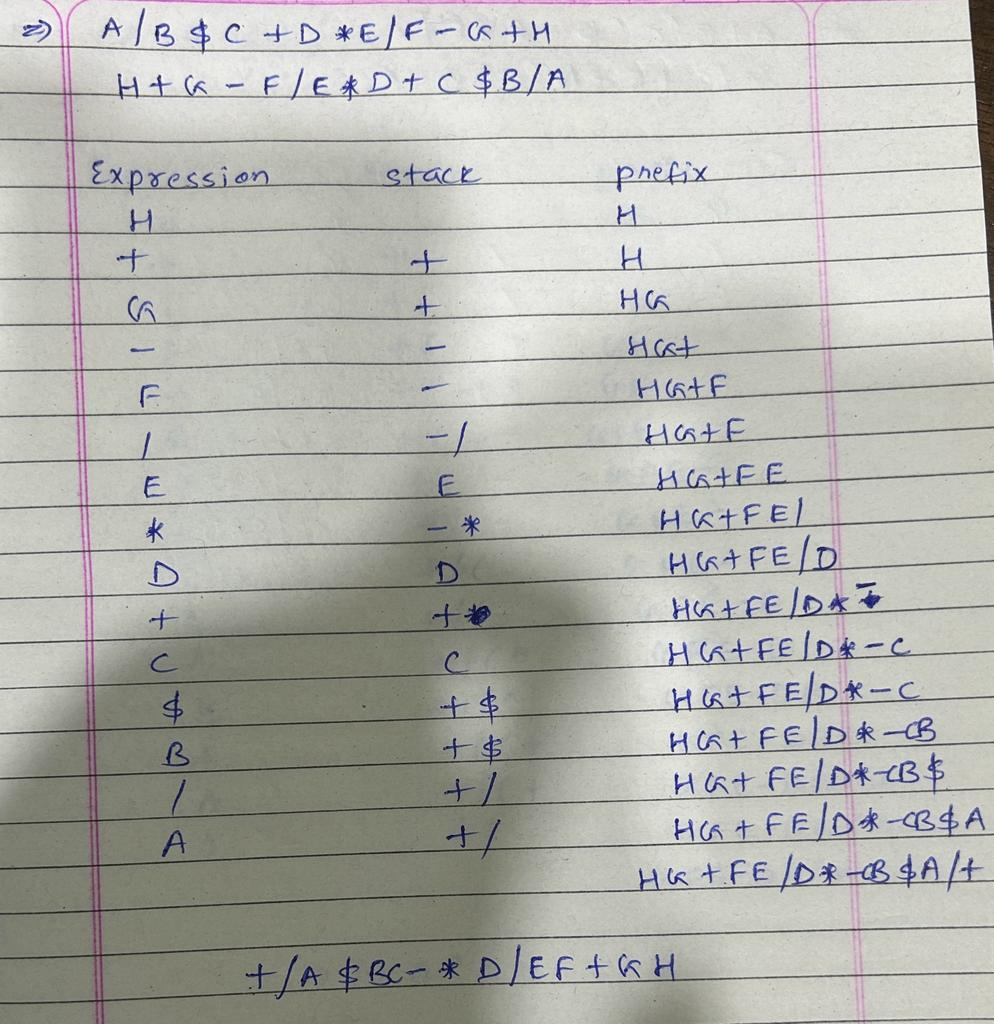 ⇒ A/B$C+D*E/F-G+H
H+G-F/E*D+C$B/A
Expression stack prefix
H H
+ + H
G + HG
- - HG+
F - HG+F
/ -/ HG+F
E E HG+FE
* -* HG+FE/
D D HG+FE/D
+ + HG+FE/D*-
C C HG+FE/D*-C
$ +$ HG+FE/D*-C
B +$ HG+FE/D*-CB
/ +/ HG+FE/D*-CB$
A +/ HG+FE/D*-CB$A
HG+FE/D*-CB$A/+
+/A$BC-*D/EF+GH